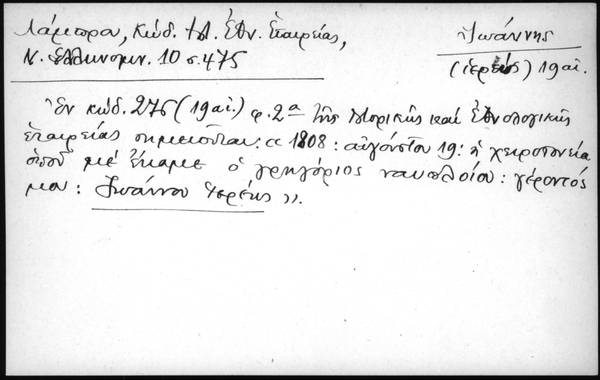 Λάμπρου, Κώδ. Ἱστ. Ἐθν. Ἑταιρείας,
Ν. Ἑλληνομν. 10 σ. 475
Ἰωάννης
(ἱερεύς) 19 αἰ.
Ἐν κώδ. 276 (19 αἰ.) φ. 2α τῆς Ἱστορικῆς καὶ Ἐθνολογικῆς
ἑταιρείας σημειοῦται: « 1808: αὐγούστου 19: ἡ χειροτονεία
ὁποῦ μὲ ἔκαμε ὁ γρηγόριος ναυπλοίου: γέροντός
μου: Ἰωάννου Ἱερέως ».